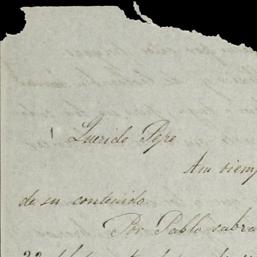 Querido Pepe
A su tiemp
de su contenido.
Por Pablo subra